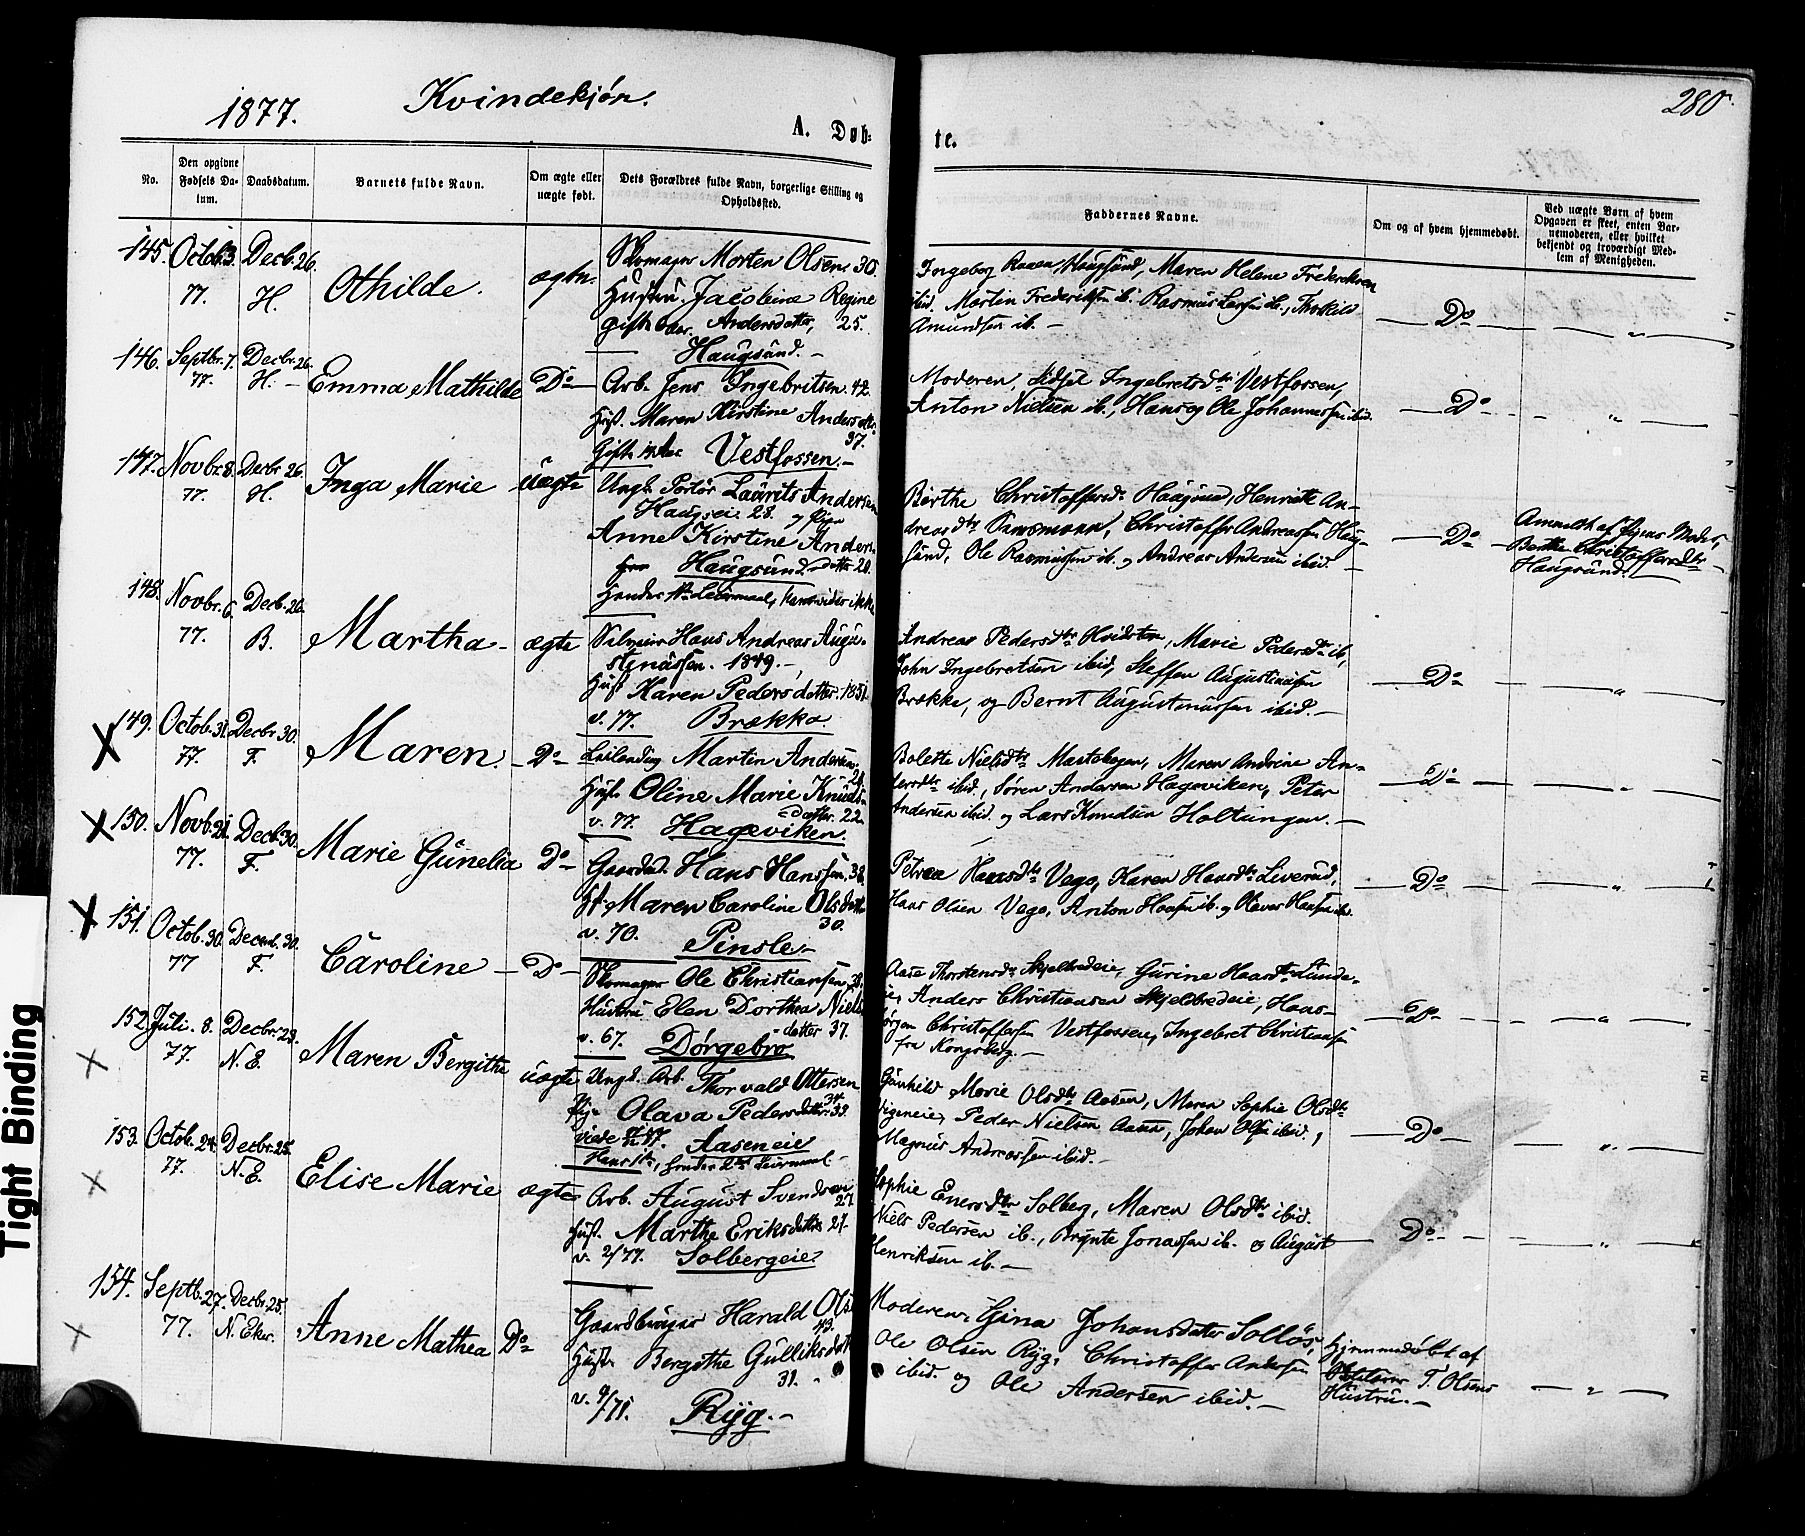 1877.
Kvindekjön.
280.
A. Døb-
te.
No.
Den opgivne Fødsels Datum.
Daabsdatum.
Barnets fulde Navn.
Om ægte eller uægte født.
Dets Forældres fulde Navn, borgerlige Stilling og Opholdssted.
Faddernes Navne.
Om og af hvem hjemmedøbt.
Ved uægte Børn af hvem Opgaven er skeet, enten Barnemoderen, eller hvilket bekjendt og troværdigt Medlem af Menigheden.
145. Octob. 3. 77. Decb. 26. H.
Othilde.
ægte.
Skomager Morten Olsen 30.
Hustru Jacobine Regine
Andersdatter, 25.
Haugsund.
Ingeborg Haugsund, Maren Helene Frederiksen
ibid. Martin Frederiksen ib. Rasmus Larsen ib., Thorkild
Amundsen ib. —
Do
146. Septbr. 7. 77. Decbr. 26. H.
Emma Mathilde
Do
Arb. Jens Ingebritsen 42.
Hust. Maren Kirstine Andersdtr.
37.
Vestfossen. —
Moderen, Sidsel Ingebretsdtr Vestfossen,
Anton Nielsen ib., Hans og Ole Johannessen ibid.
Do
147. Novbr. 8. 77. Decbr. 26. H.
Inga Marie
uægte
Ungk. Laurits Andersen
Haugsei. 28. og Pigen
Anne Kirstine Anders-
Haugsund. datter 20.
Hendes 1ste Leiermaal, hans vides ikke
Berthe Christoffersdr Haugsund, Henriette An-
dreasdtr, Christoffer Andreassen Haug-
sund, Ole Rasmussen ib. og Andreas Andersen ibid. —
Do
Anmeldt af Pigens Moder,
Berthe Christoffersdtr
Haugsund.
148. Novbr. 6. 77. Decb. 26. B.
Martha
ægte
Hans Andreas Augu-
stinussen. 1849. —
Hust. Karen Pedersdatter. 1851.
v. 77. Brække.
Pedersdtr, Marie Pedersdtr ib,
John Ingebretsen ibid, Steffen Augustinussen
Brække, og Bernt Augustinussen ibid. —
Do
149. Octob. 31. 77. Decbr. 30. F.
Maren.
Do
Martin Andersen.
Hust. Oline Marie Knuds-
v. 77. datter. 22
Hageviken.
Bolette Nielsdtr, Maren Andrine An-
dersdtr ibid., Søren Andersen Hageviken, Peter
Andersen ibid. og Lars Knudsen Holtungen. —
Do
150. Novb. 21. 77. Decb. 30. F.
Marie Gunelia
Do
Gaardbr. Hans Hanssen. 38.
H. Maren Caroline Olsdatter
30.
v. 70. Pinsle. —
Petrea Hansdtr Vego, Karen Hansdtr Liverud,
Hans Olsen Vego, Anton Hansen ib. og Olaves Hansen ib.
Do
151. Octob. 30. 77 Decemb. 30. F.
Caroline
Do
Skomager Ole Christiansen 38.
Hustru Elen Dorthea Niels
datter 37.
v. 67. Dørgebro
Aase Thorstensdr Skjelbredeie, Gurine Hansdtr Lunde-
eie, Anders Christiansen Skjelbredeie, Hans
Jørgen Christoffersen Vestfossen, Ingebret Christiansen
fra Kongsberg. —
Do
152. Juli. 8. 77. Decbr. 23. N.E.
Maren Bergithe
uægte
Ungk. Arb. Thorvald Ottersen
34
Pige Olava Pedersdatter. 39.
Aaseneie
Hans 1ste, hendes 2det Leiermaal —
Gunhild Marie Olsdtr Aasen, Maren Sophie Olsdtr
Vigeneie, Peder Nielsen Aasen, Johan Olsen ibid.,
Magnus Andreassen ibid. —
Do
153. Octob. 24. 77. Decbr. 25. N.E.
Elise Marie
ægte
Arb. August Svendsen
27.
Hust. Marthe Eriksdatter 27.
v. 2/77. Solbergeie.
Sophie Enersdtr Solberg, Maren Olsdtr ibid.
Niels Pedersen ib., Brynte Jonassen ib. og August
Henriksen ib. —
Do
154. Septb. 27. 77. Decbr. 25. N. Eker.
Anne Mathea
Do
Gaardbruger Harald Ols
43.
Hust. Bergithe Gulliksdat
31.
v. 9/71. Ryg. —
Moderen, Gina Johansdater Solløs,
Ole Olsen Ryg, Christoffer Andersen
ibid. og Ole Andersen ibid. —
Hjemmedøbt af
T. Olsens
Hustru. —
Tight Binding